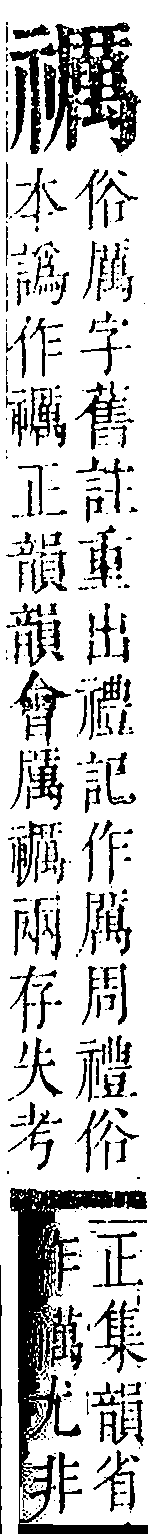 禲
俗厲字舊註重出禮記作厲周禮俗
本譌作禲正韻韻會厲禲兩存失考
正集韻省
作尤非